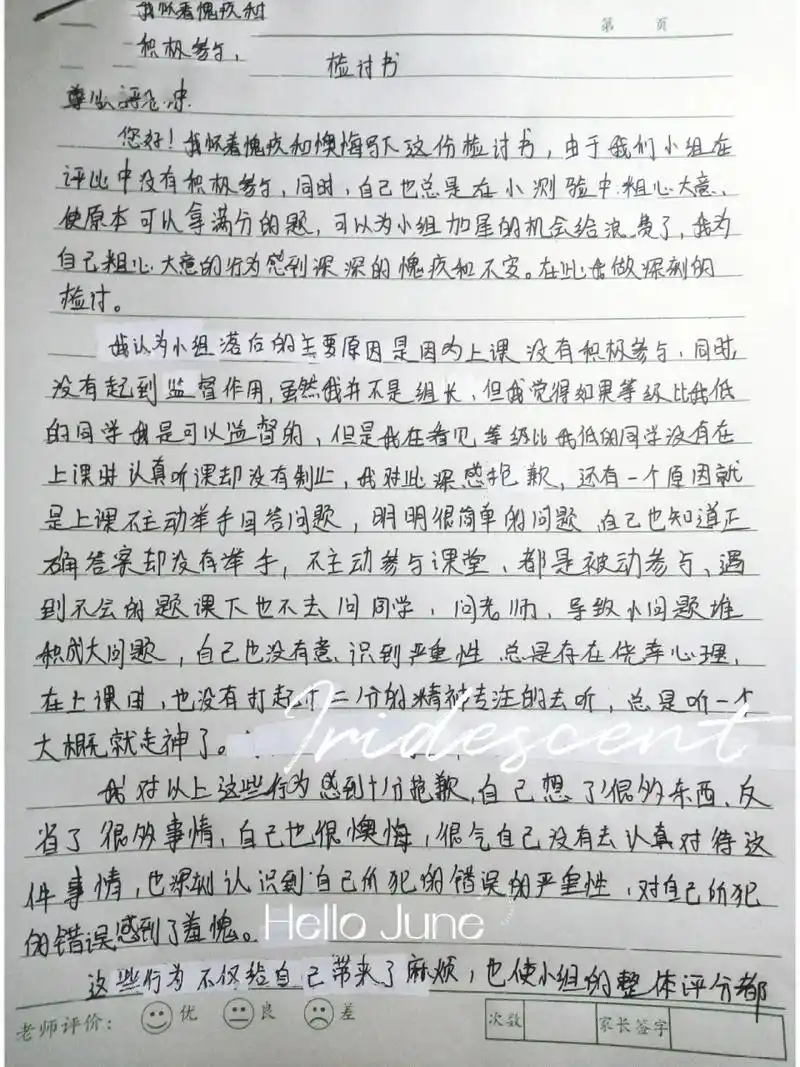 我怀着愧疚和
第 页
积极参与,
检讨书
尊
您好!我怀着愧疚和懊悔写下这份检讨书,由于我们小组在
评比中没有积极参与,同时,自己也总是在小测验中粗心大意、
使原本可以拿满分的题,可以为小组加星的机会给浪费了,我为
自己粗心大意的行为感到深深的愧疚和不安。在此我做深刻的
检讨。
我认为小组落后的主要原因是因为上课没有积极参与,同时,
没有起到监督作用,虽然我并不是组长,但我觉得如果等级比我低
的同学我是可以监督的,但是我在看见等级比我低的同学没有在
上课时认真听课却没有制止,我对此深感抱歉,还有一个原因就
是上课不主动举手回答问题,明明很简单的问题 自己也知道正
确答案却没有举手,不主动参与课堂、都是被动参与、遇
到不会的题课下也不去问同学,问老师、导致小问题堆
积成大问题,自己也没有意识到严重性 总是存在侥幸心理,
在上课时,也没有打起十二分的精神专注的去听,总是听一个
大概就走神了。
Iridescent
我对以上这些行为感到十分抱歉,自己想了很多东西、反
省了很多事情,自己也很懊悔,很气自己没有去认真对待这
件事情,也深刻认识到自己所犯的错误的严重性,对自己所犯
的错误感到了羞愧。
Hello June
这些行为不仅给自己带来了麻烦,也使小组的整体评分都
老师评价: 优 良 差 次数 家长签字